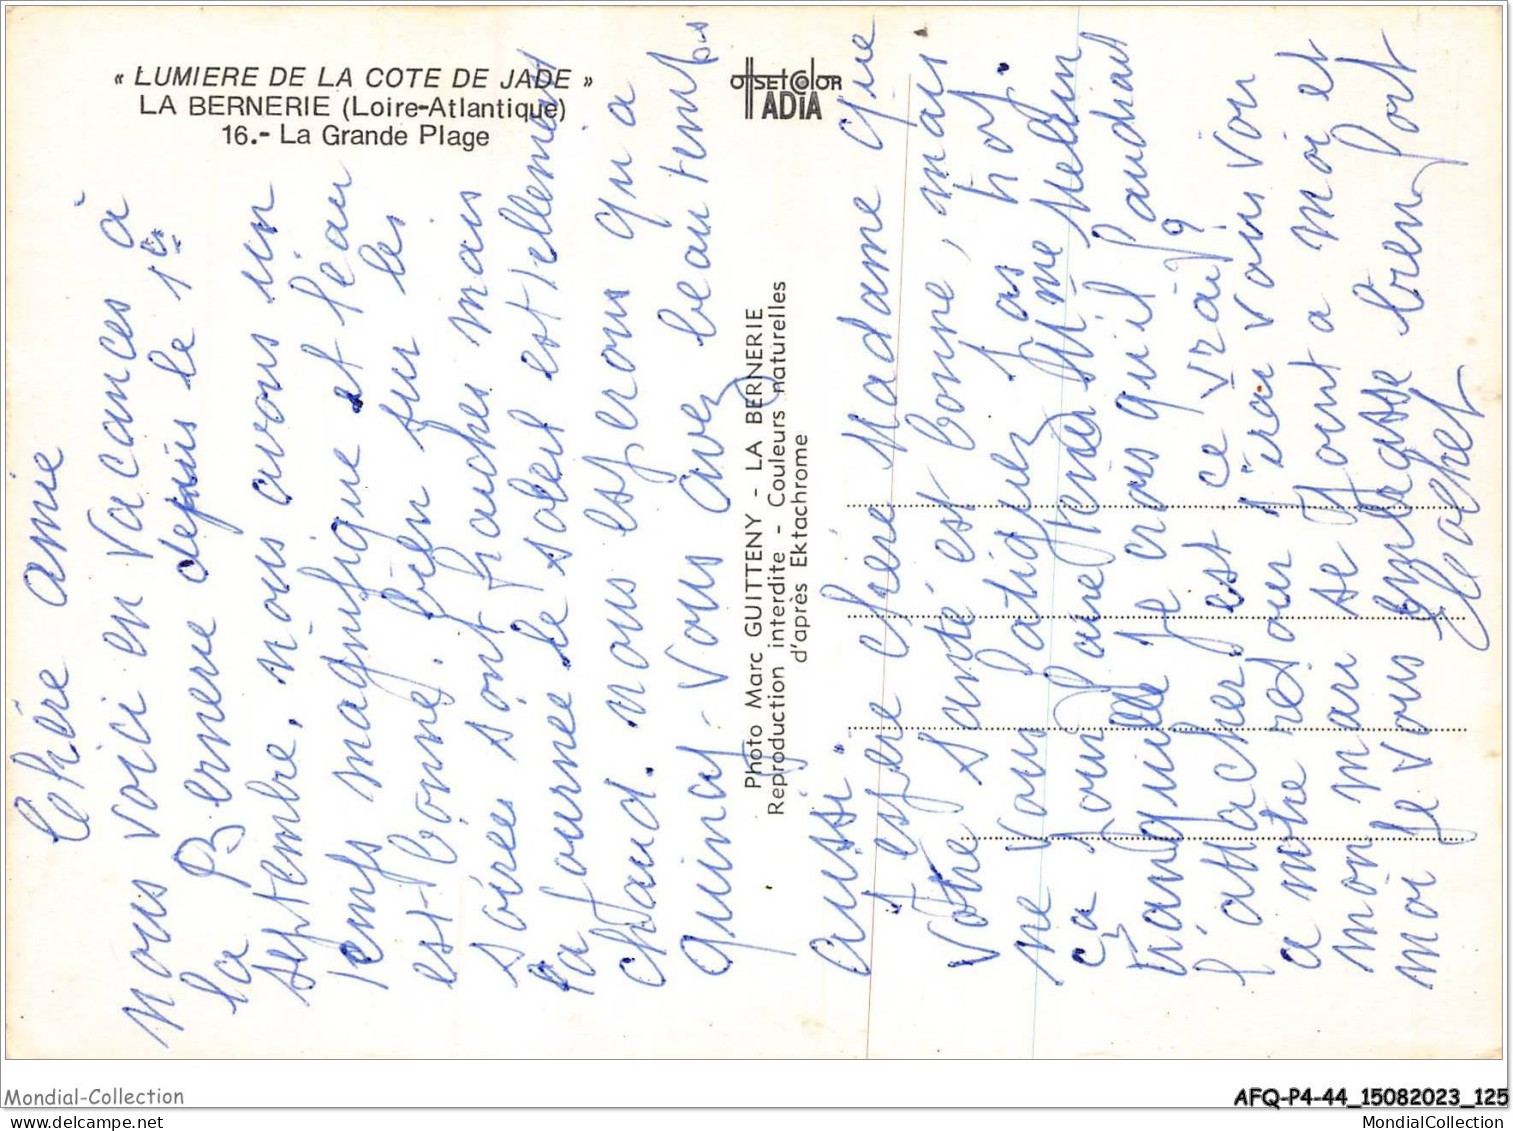 « LUMIERE DE LA COTE DE JADE »
LA BERNERIE (Loire-Atlantique)
16.- La Grande Plage
offsetcolor
ADIA
Photo Marc GUITTENY - LA BERNERIE
Reproduction interdite - Couleurs naturelles
d'après Ektachrome
Chère amie
nous voici en vacances à
la Bernerie depuis le 1er
septembre, nous avons un
temps magnifique et l'eau
est bonne. bien sur les
soirées sont fraiches mais
la journée le soleil est tellement
chaud. nous esperons qu'a
Quincy. vous avez beau temps
aussi.
J'espère chère Madame que
votre santé est bonne, mais
ne vous fatiguez pas trop.
ça pour faire tenir Mme
tranquille je crois qu'il faudrait
l'attacher est ce vrai?
a notre retour j'irai vous voir
mon mari se joint a moi et
moi je vous embrasse bien fort